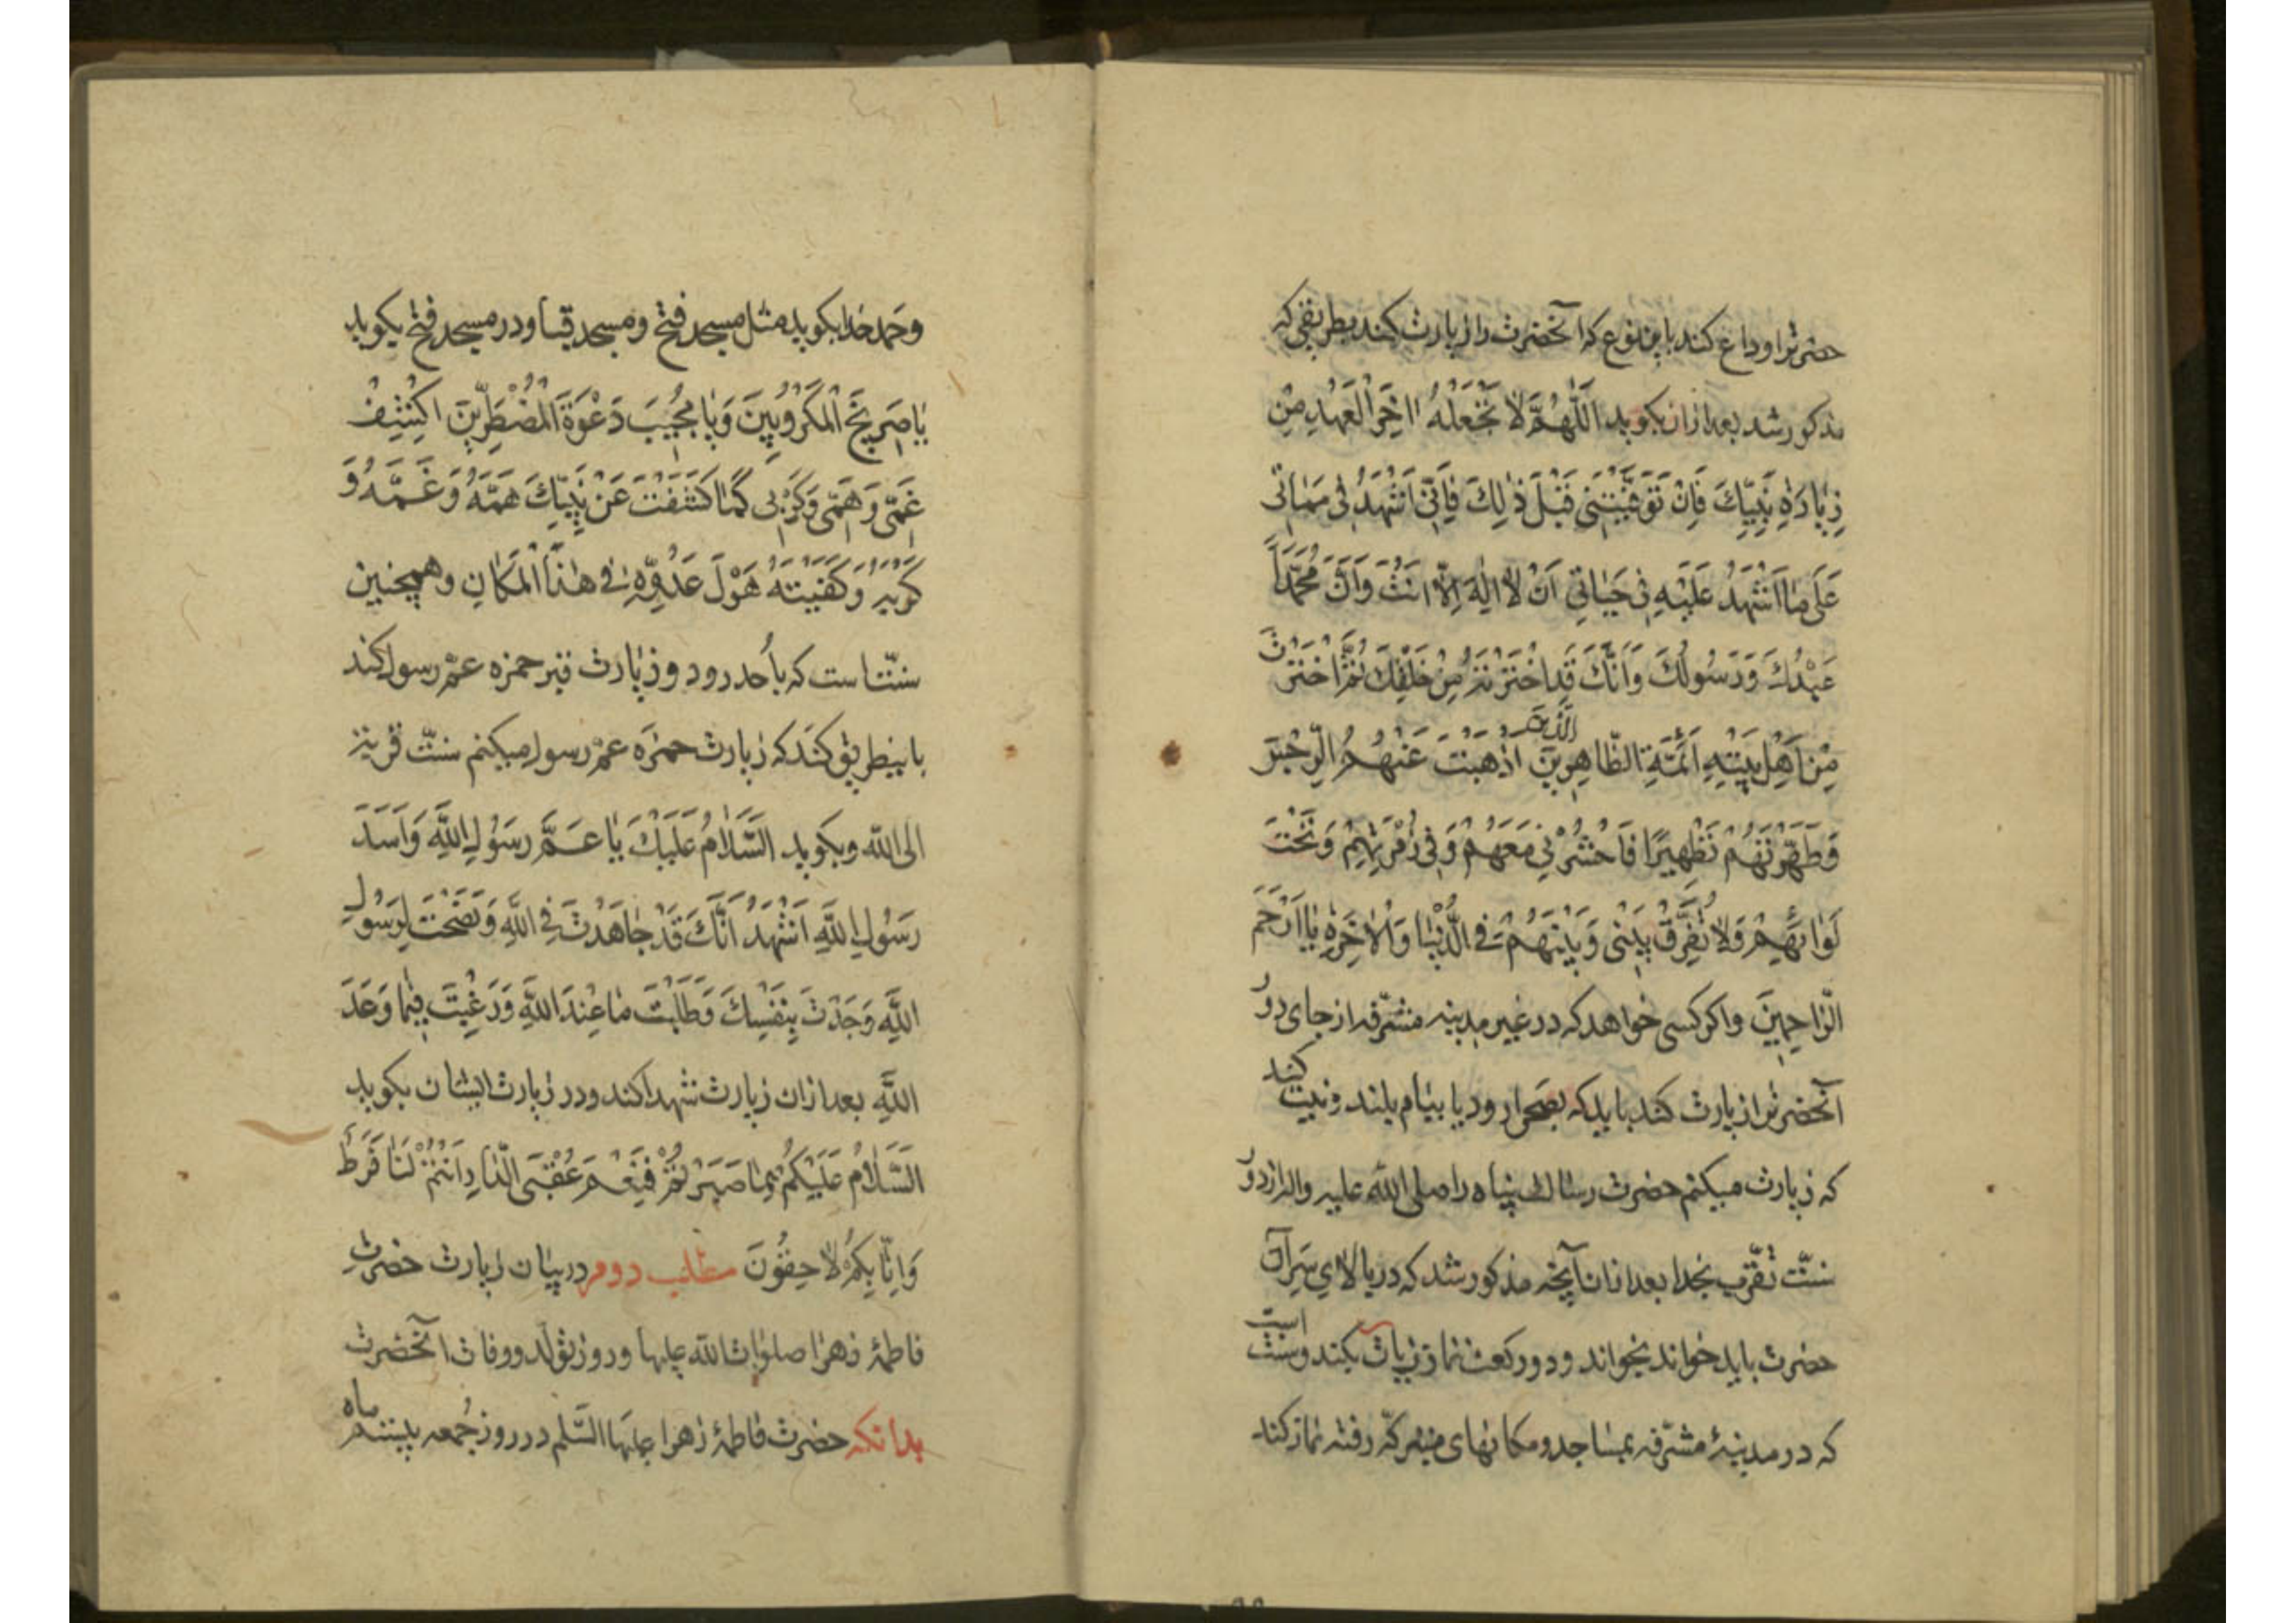 حضرترا وداع کند باین نوع که آنحضرت را زیارت کند بطریقی که
مذکور شد بعد ازان بکوید اَللّٰهُمَّ لا تَجْعَلْهُ اٰخِرَ الْعَهْدِ مِنْ
زِيٰارَةِ نَبِيِّكَ فَاِنْ تَوَفَّيْتَنى قَبْلَ ذٰلِكَ فَاِنّى اَشْهَدُ فى مَمٰاتى
عَلٰى مٰا اَشْهَدُ عَلَيْهِ فى حَيٰاتى اَنْ لا اِلٰهَ اِلّا اَنْتَ وَاَنَّ مُحَمَّداً
عَبْدُكَ وَرَسُولُكَ وَاَنَّكَ قَدِ اخْتَرْتَهُ مِنْ خَلْقِكَ ثُمَّ اخْتَرْتَ
مِنْ اَهْلِ بَيْتِهِ اَئِمَّةِ الطّاهِرينَ الَّذينَ اَذْهَبْتَ عَنْهُمُ الرِّجْسَ
وَطَهَّرْتَهُمْ تَطْهيرًا فَاحْشُرْنى مَعَهُمْ وَفى زُمْرَتِهِمْ وَتَحْتَ
لَوٰائِهِمْ وَلا تُفَرِّقْ بَيْنى وَبَيْنَهُمْ فى الدُّنْيٰا وَالْاٰخِرَةِ يٰا اَرْحَمَ
الرّاحِمينَ واکر کسی خواهد که در غیر مدینه مشرّفه از جای دوُر
آنحضرترا زیارت کند باید که بصحرا رود یا ببام بلند و نیت کند
که زیارت میکنم حضرت رسالت پناه را صلى الله علیه واله از دوُر
سنّت تقرّب بخدا بعد ازان آنچه مذکور شد که در بالای سر آن
حضرت باید خواند بخواند و دو رکعت نماز زیارت بکند و سنت است
که در مدینهٔ مشرّفه بمساجد و مکانهای متبرکّه رفته نماز کند
وحمد خدا بکوید مثل مسجد فتح ومسجد قبا ودر مسجد فتح بکوید
يٰا صَريخَ الْمَكْرُوبينَ وَيٰا مُجيبَ دَعْوَةَ الْمُضْطَرّينَ اكْشِفْ
غَمّى وَهَمّى وَكَرْبى كَمٰا كَشَفْتَ عَنْ نَبِيِّكَ هَمَّهُ وَغَمَّهُ وَ
كَرْبَهُ وَكَفَيْتَهُ هَوْلَ عَدُوِّهِ فى هٰذَا الْمَكٰانِ وهمچنین
سنّت است که باُحد رود و زیارت قبر حمزه عمّ رسول کند
باینطریق کند که زیارت حمزه عمّ رسول میکنم سنّت قربة
الی الله وبکوید اَلسَّلاٰمُ عَلَيْكَ يٰا عَمَّ رَسُولِ اللّٰهِ وَاَسَدَ
رَسُولِ اللّٰهِ اَشْهَدُ اَنَّكَ قَدْ جٰاهَدْتَ فى اللّٰهِ وَنَصَحْتَ لِرَسُولِ
اللّٰهِ وَجَدْتَ بِنَفْسِكَ وَطَلَبْتَ مٰا عِنْدَ اللّٰهِ وَرَغِبْتَ فيمٰا وَعَدَ
اللّٰهِ بعد ازان زیارت شهدا کند ودر زیارت ایشان بکوید
اَلسَّلاٰمُ عَلَيْكُمْ بِمٰا صَبَرْتُمْ فَنِعْمَ عُقْبَى الدّارِ اَنْتُمْ لَنٰا فَرَطٌ
وَاِنّا بِكُمْ لاٰحِقُونَ مطلب دوم در بیان زیارت حضرت
فاطمهٔ زهرا صلوات الله علیها وروز تولّد ووفات آنحضرت
بدانکه حضرت فاطمهٔ زهرا علیها السَّلم در روز جُمعه بیستم ماه